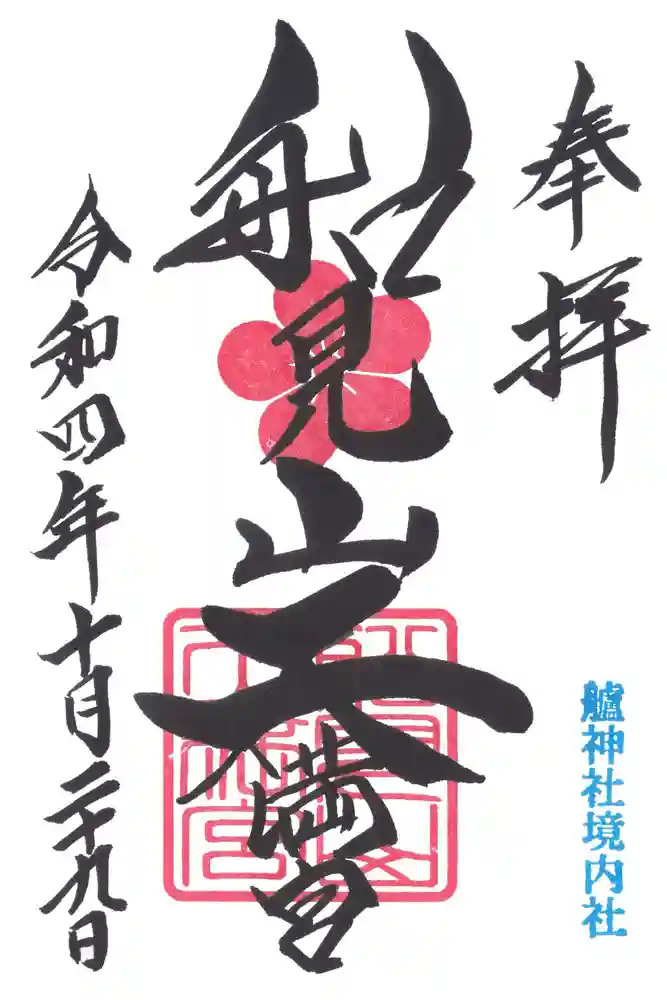 奉拝
艫神社境内社
船見山天満宮
令和四年十月二十九日